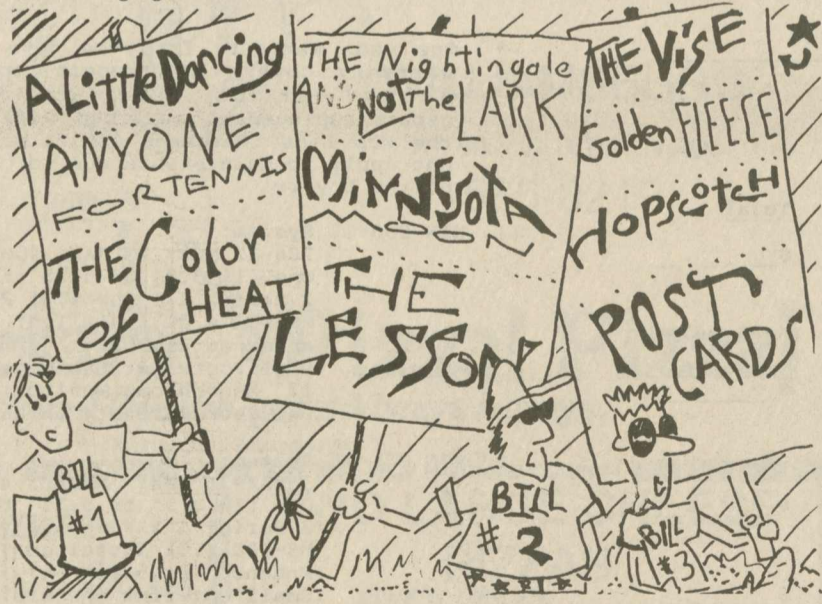 A Little Dancing
ANYONE
FOR TENNIS
THE Color
of HEAT
THE Nightingale
AND NOT The LARK
MINNESOTA
MOON
THE
LESSON
THE VISE
Golden FLEECE
HOPSCOTCH
POST
CARDS
BILL
#1
BILL
# 2
BILL
#3